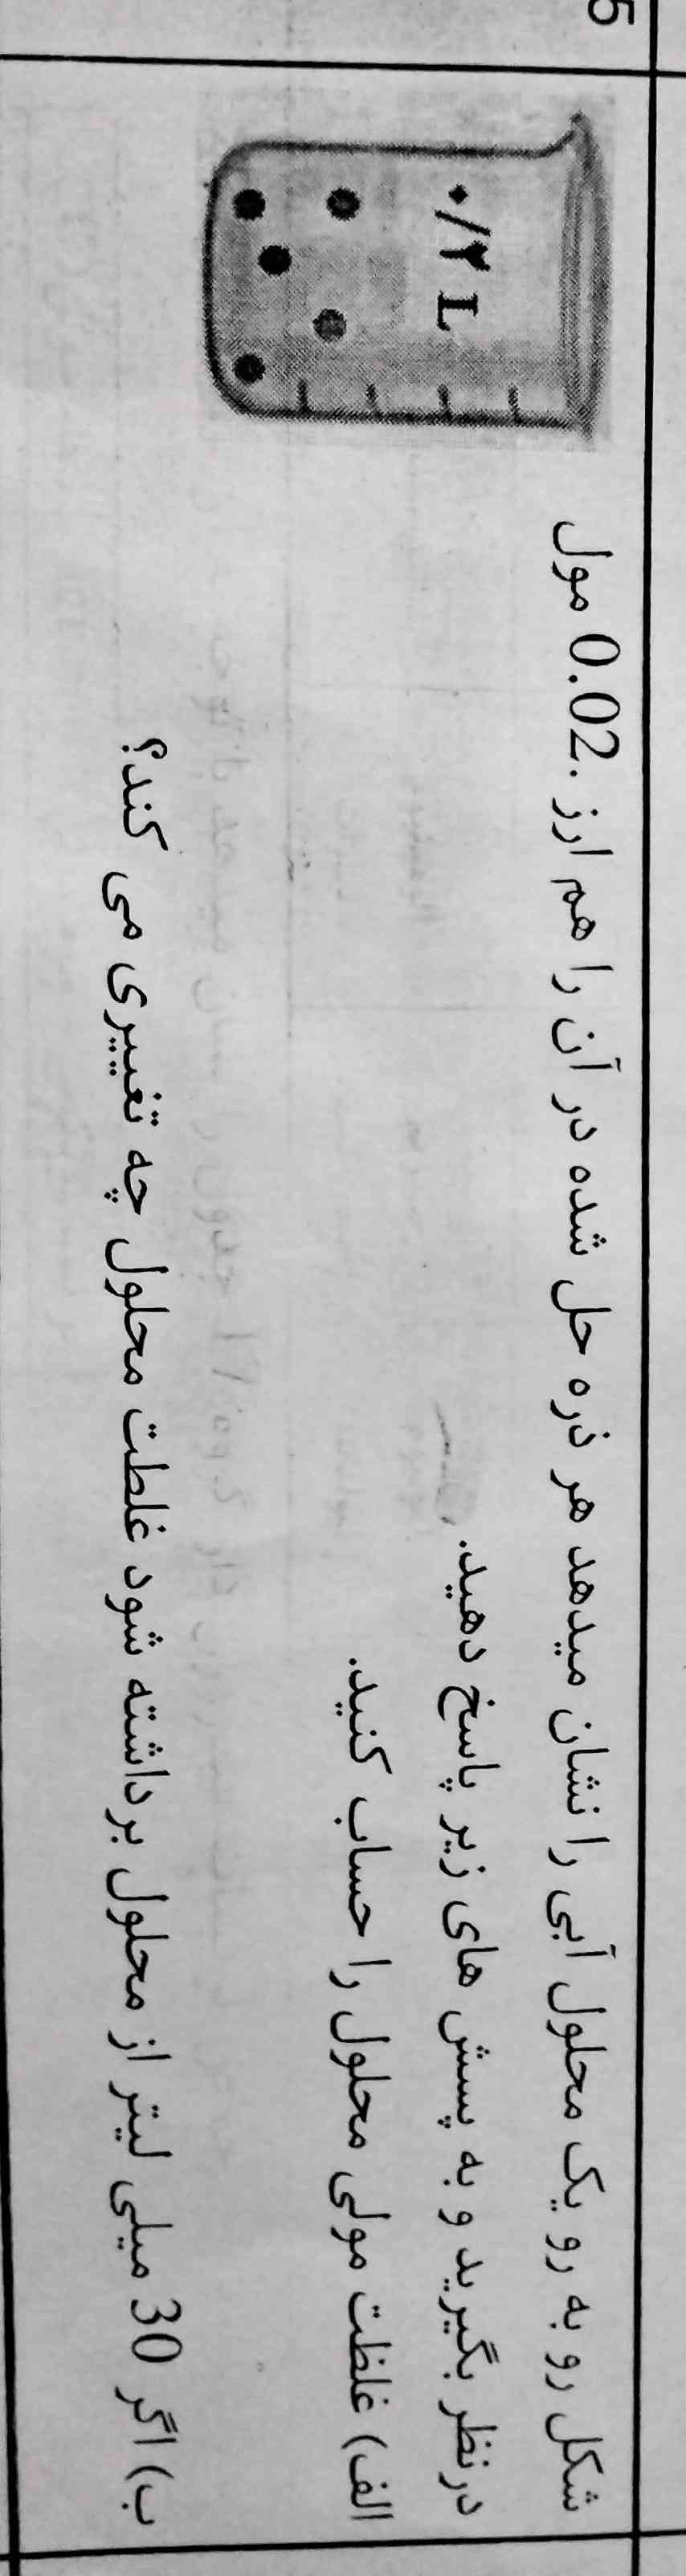 5
شکل رو به رو یک محلول آبی را نشان میدهد هر ذره حل شده در آن را هم ارز .0.02 مول
در نظر بگیرید و به پسش های زیر پاسخ دهید.
الف) غلظت مولی محلول را حساب کنید.
ب) اگر 30 میلی لیتر از محلول برداشته شود غلطت محلول چه تغییری می کند؟
۰/۲ L